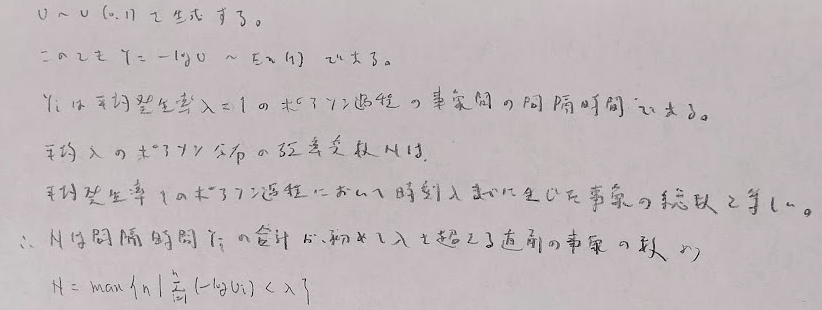 U ~ U(0,1) で生成する。
このとき Y = -log U ~ Ex(1) である。
Yi は平均発生率 λ=1 のポアソン過程の事象間の間隔時間である。
平均 λ のポアソン分布の確率変数 N は、
平均発生率 1 のポアソン過程において時刻 λ までに生じた事象の総数と等しい。
∴ N は間隔時間 Yi の合計が、初めて λ を超える直前の事象の数より
N = max{n | Σ_{i=1}^{n} (-log Ui) < λ}